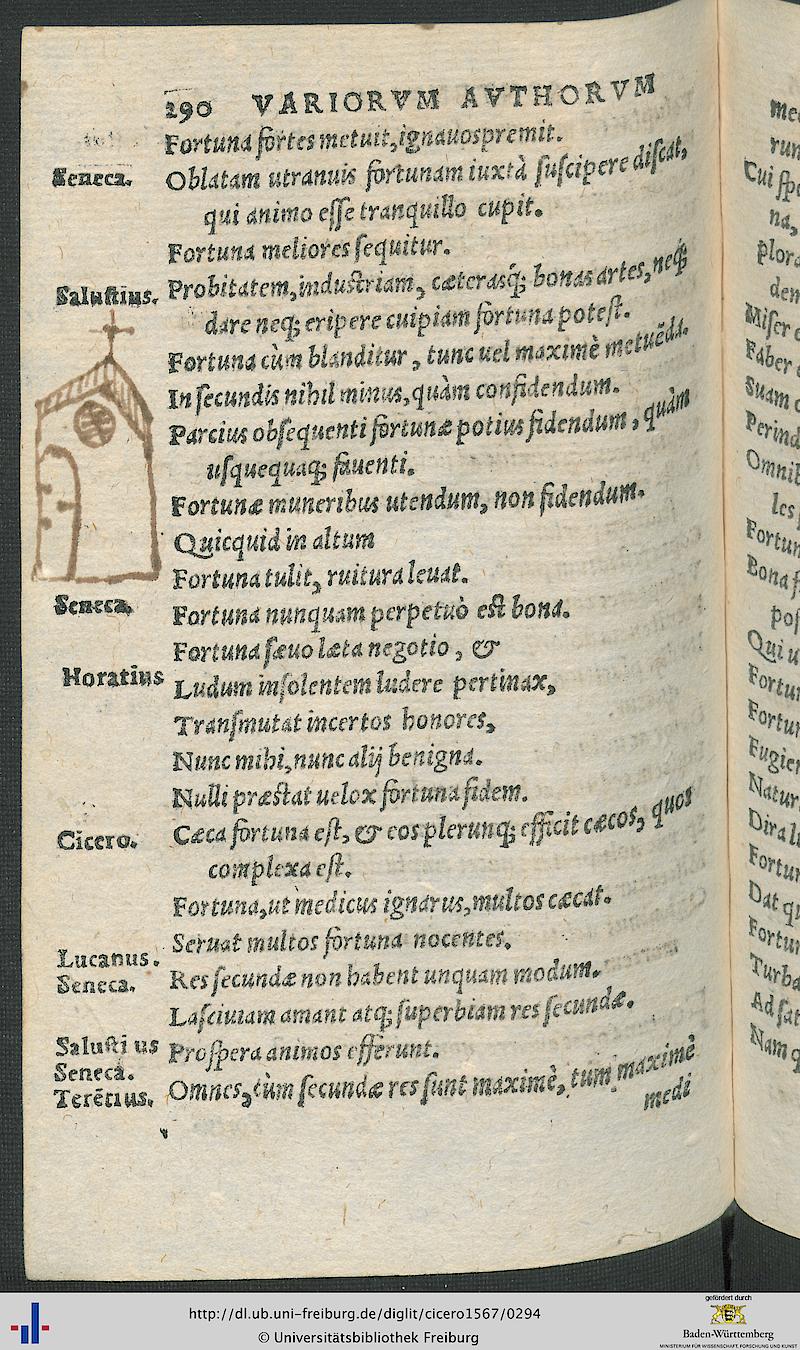 290 VARIORVM AVTHORVM
Fortuna fortes metuit, ignauos premit.
Seneca. Oblatam utranuis fortunam iuxtà ſuſcipere diſcat,
qui animo eſſe tranquillo cupit.
Fortuna meliores ſequitur.
Saluſtius. Probitatem, induſtriam, cæterasq́; bonas artes, neq́;
dare neq; eripere cuipiam fortuna poteſt.
Fortuna cùm blanditur, tunc uel maximè metuẽda.
In ſecundis nihil minus, quàm confidendum.
Parcius obſequenti fortunæ potius fidendum, quàm
uſquequaq; fauenti.
Fortunæ muneribus utendum, non fidendum.
Quicquid in altum
Fortuna tulit, ruitura leuat.
Seneca. Fortuna nunquam perpetuò eſt bona.
Fortuna ſæuo læta negotio, &
Horatius Ludum inſolentem ludere pertinax,
Tranſmutat incertos honores,
Nunc mihi, nunc alij benigna.
Nulli præſtat uelox fortuna fidem.
Cicero. Cæca fortuna eſt, & eos plerunq; efficit cæcos, quos
complexa eſt.
Fortuna, ut medicus ignarus, multos cæcat.
Lucanus. Seruat multos fortuna nocentes.
Seneca. Res ſecundæ non habent unquam modum.
Laſciuiam amant atq; ſuperbiam res ſecundæ.
Saluſti us Proſpera animos efferunt.
Seneca.
Terẽtius. Omnes, cùm ſecundæ res ſunt maximè, tum maximè
medi
run
Cui ſpe
na,
plora
den
Miſer e
Faber
Suam
Perind
Omnib
les
Fortun
Bona f
poſ
Qui u
Fortun
Fortun
Fugien
Natur
Dira l
Fortun
Dat qu
Fortun
Turba
Ad ſat
Nam q
http://dl.ub.uni-freiburg.de/diglit/cicero1567/0294
© Universitätsbibliothek Freiburg
gefördert durch
Baden-Württemberg
MINISTERIUM FÜR WISSENSCHAFT, FORSCHUNG UND KUNST